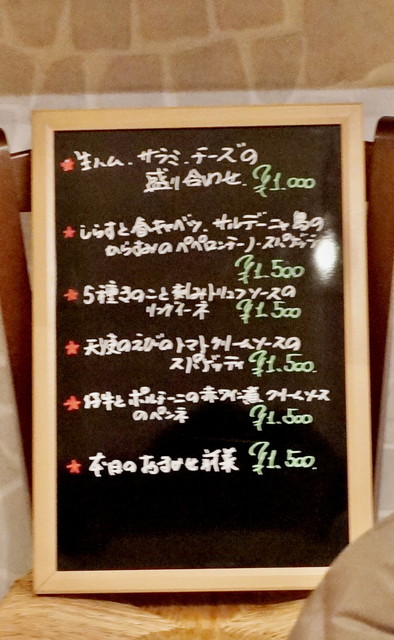 ★生ハム、サラミ、チーズの
盛り合わせ ¥1.000
★しらすと春キャベツ、サルデーニャ島の
からすみのペペロンチーノ・スパゲッティ
¥1.500
★5種きのこと刻みトリュフソースの
リングイーネ ¥1.500
★天使のえびのトマトクリームソースの
スパゲッティ ¥1.500
★仔牛とポルチーニの赤ワイン煮 クリームソース
のペンネ ¥1.500
★本日のおまかせ前菜 ¥1.500